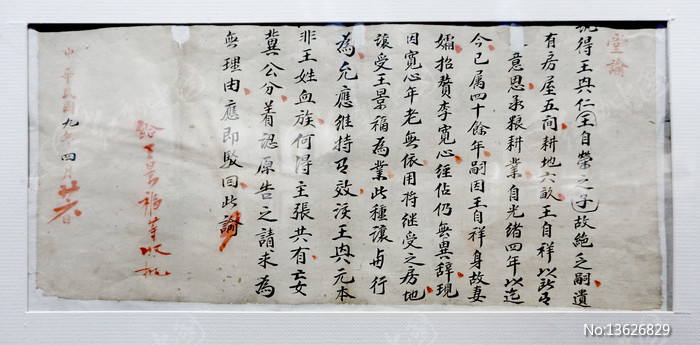 堂諭
訊得王與仁王自榮之子故絶乏嗣遺
有房屋五間耕地六畝王自祥以
意思承粮耕業自光緒四年以迄
今已属四十餘年嗣因王自祥身故妻
孀招贅李寬心經佔仍無異辞現
因寬心年老無依用将继受之房地
讓受王景福為業此種讓与行
為允應維持有效該王與元本
非王姓血族何得主張共有妄
冀公分着認原告之請求為
無理由應即駁回此諭
給王景福等收执
中華民國九年四月廿六日
No:13626829